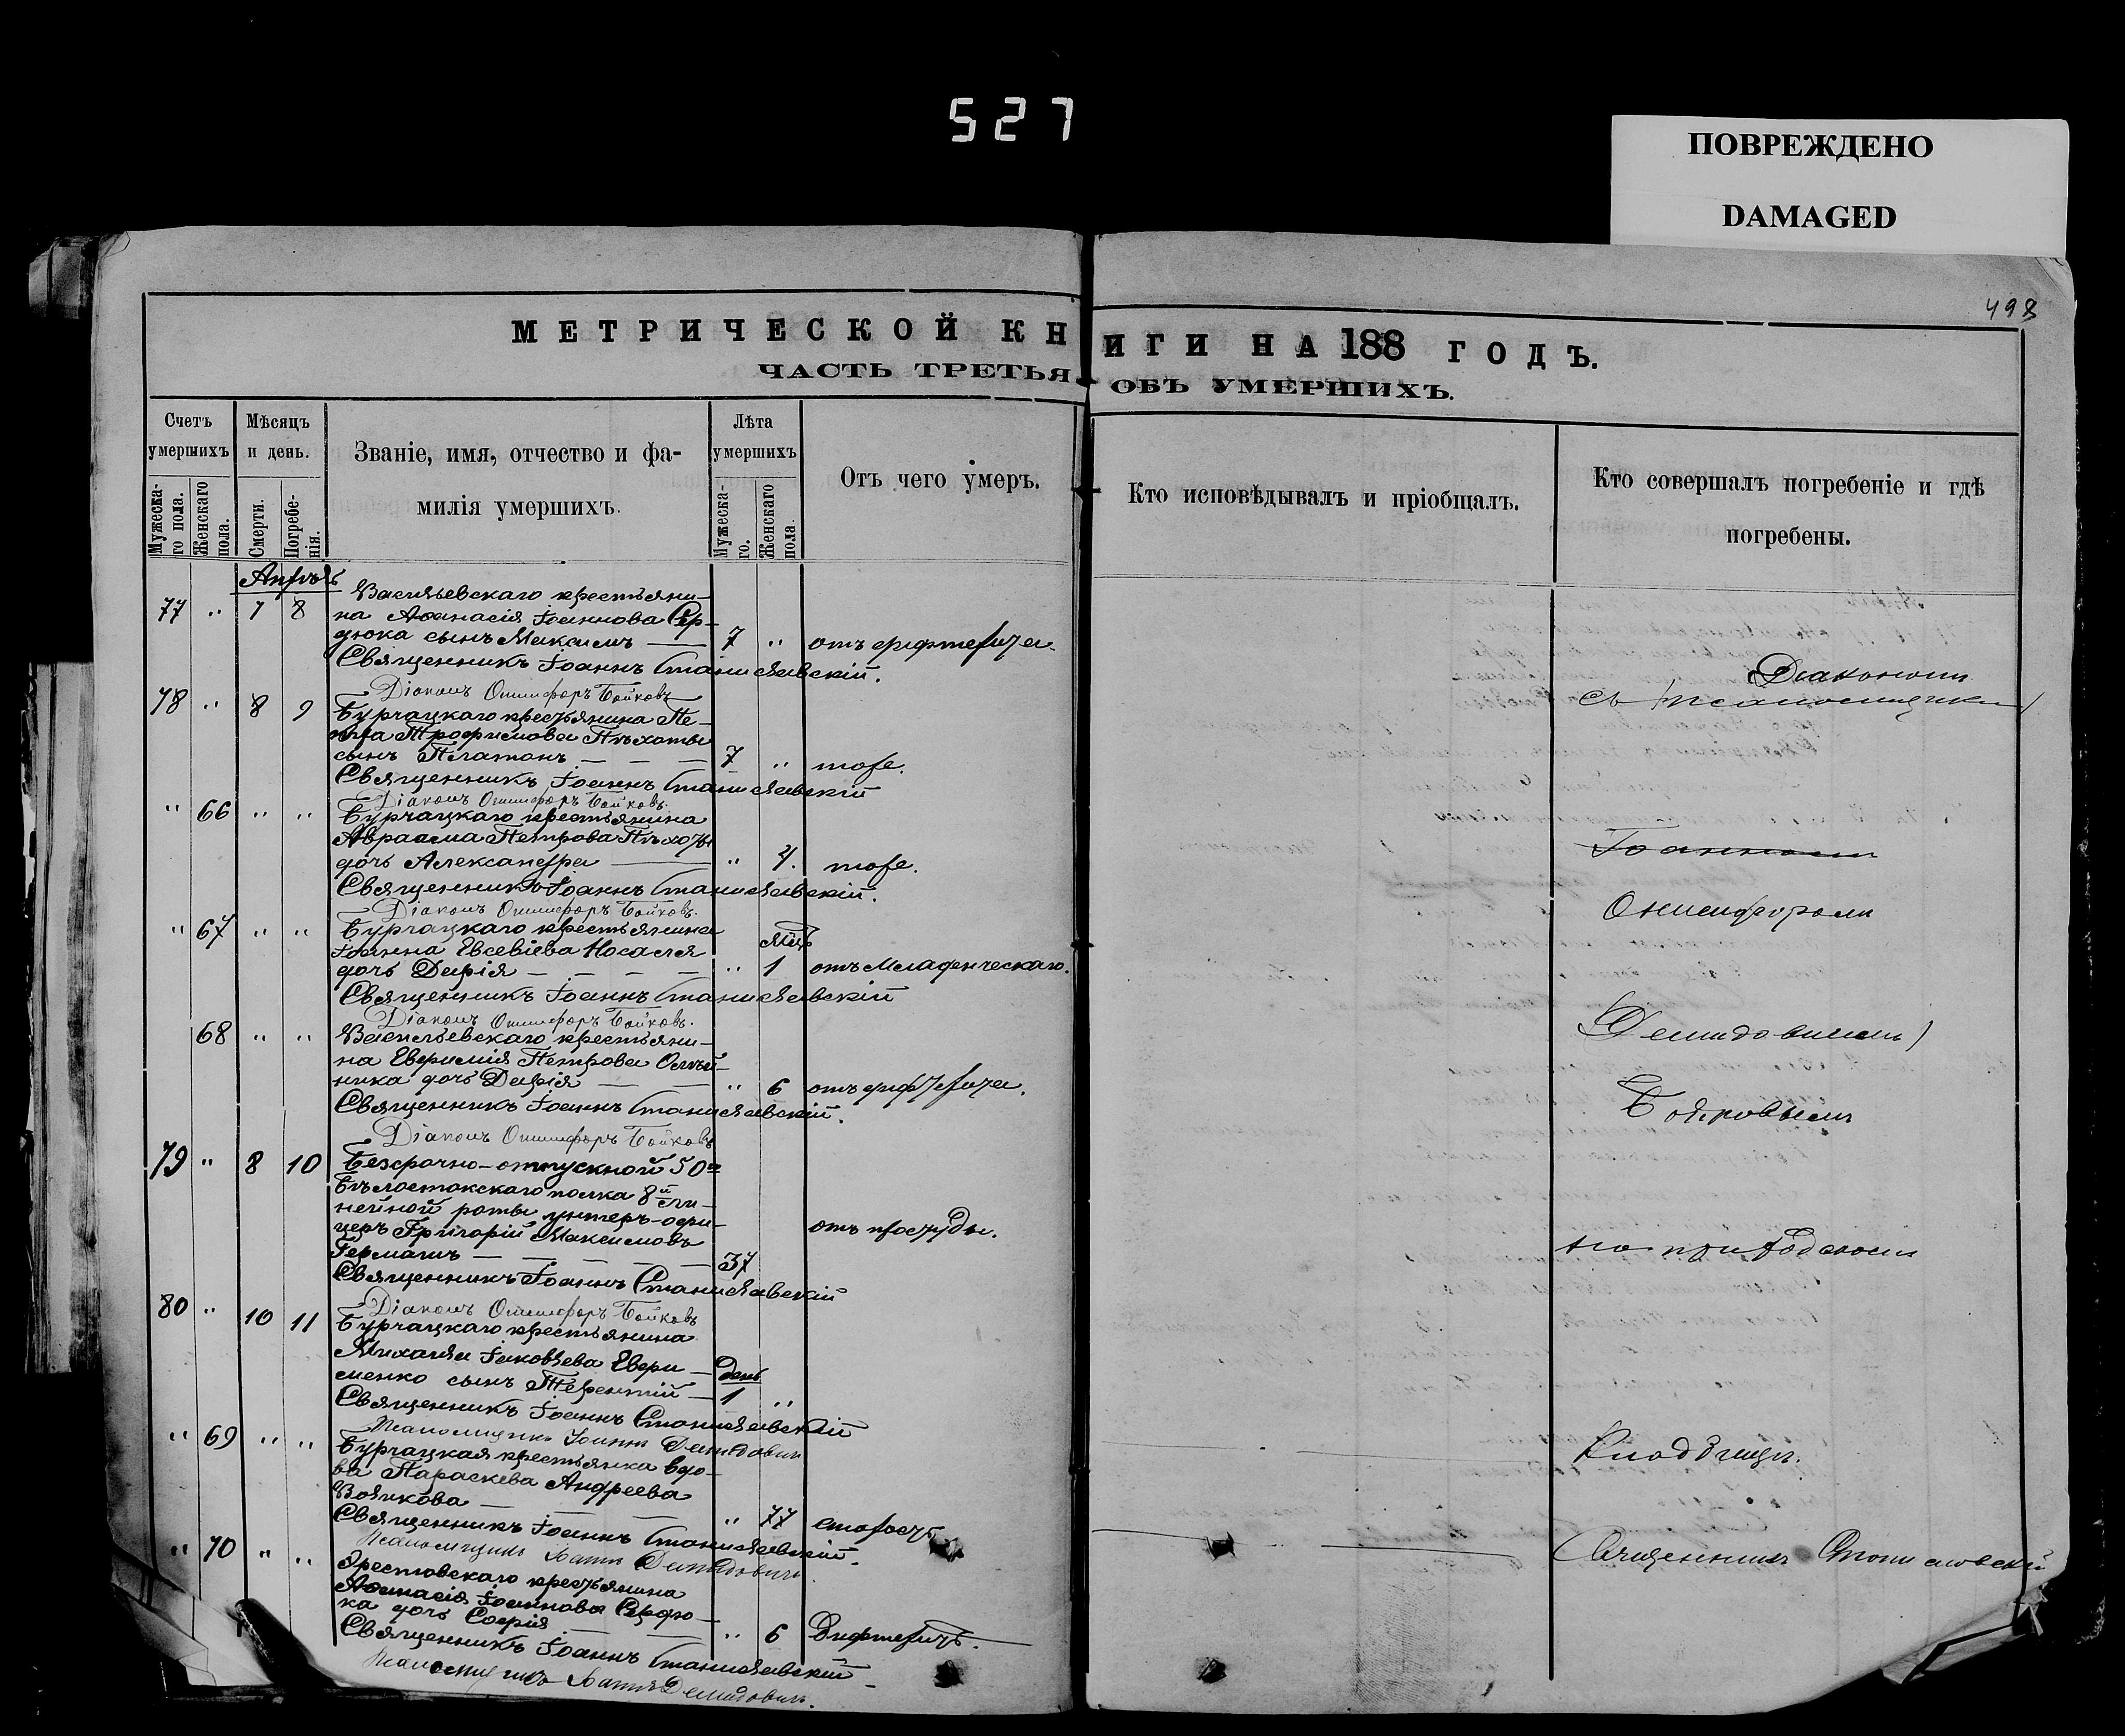 527
ПОВРЕЖДЕНО
DAMAGED
498
МЕТРИЧЕСКОЙ КНИГИ НА 188 ГОДЪ.
ЧАСТЬ ТРЕТЬЯ ОБЪ УМЕРШИХЪ.
Счетъ умершихъ
Мужеска-го пола.
Женскаго пола.
Мѣсяцъ и день.
Смерти.
Погребе-нія.
Званіе, имя, отчество и фа-
милія умершихъ.
Лѣта умершихъ
Мужеска-го.
Женскаго пола.
Отъ чего умеръ.
Кто исповѣдывалъ и пріобщалъ.
Кто совершалъ погребеніе и гдѣ
погребены.
Апрѣль
Васильевскаго крестьяни-
77 " 7 8 на Аѳанасія Іоаннова Сер-
дюка сынъ Максимъ — 7 " отъ дифтерита.
Священникъ Іоаннъ Станиславскій.
Діаконъ Онисифоръ Бойковъ
78 " 8 9 Бурчацкаго крестьянина Пе-
тра Трофимова Пѣхоты
сынъ Платонъ — — — 7 " тоже.
Священникъ Іоаннъ Станиславскій
Діаконъ Онисифоръ Бойковъ.
" 66 " " Бурчацкаго крестьянина
Авраама Петрова Пѣхоты
дочь Александра — " 4. тоже.
Священникъ Іоаннъ Станиславскій.
Діаконъ Онисифоръ Бойковъ.
" 67 " " Бурчацкаго крестьянина
Іоанна Евсевіева Носаля мѣс
дочь Дарія — — — — " 1 отъ младенческаго.
Священникъ Іоаннъ Станиславскій
Діаконъ Онисифоръ Бойковъ.
68 " " Васильевскаго крестьяни-
на Евфимія Петрова Олѣй-
ника дочь Дарія — — " 6 отъ дифтерита.
Священникъ Іоаннъ Станиславскій.
Діаконъ Онисифоръ Бойковъ
79 " 8 10 Безсрочно-отпускной 50го
Бѣлостокскаго полка 8й ли-
нейной роты унтеръ-офи-
церъ Григорій Максимовъ отъ простуды.
Германъ — — — — 37
Священникъ Іоаннъ Станиславскій
Діаконъ Онисифоръ Бойковъ
80 " 10 11 Бурчацкаго крестьянина
Михаила Іаковлева Евфи- день
менко сынъ Терентій — 1 "
Священникъ Іоаннъ Станиславскій
Псаломщикъ Іоаннъ Демидовичъ
" 69 " " Бурчацкая крестьянка вдо-
ва Параскева Андреева
Волкова — — — " 77 старость
Священникъ Іоаннъ Станиславскій.
Псаломщикъ Іоаннъ Демидовичъ
" 70 " " Орестовскаго крестьянина
Аѳанасія Іоаннова Сердю-
ка дочь Софія — — " 6 Дифтеритъ.
Священникъ Іоаннъ Станиславскій
Псаломщикъ Іоаннъ Демидовичъ.
Діакономъ
съ псаломщикомъ
Іоанномъ
Онисифоромъ
Демидовичемъ
Бойковымъ
на приходскомъ
Кладбищѣ.
Священникъ Станиславскій